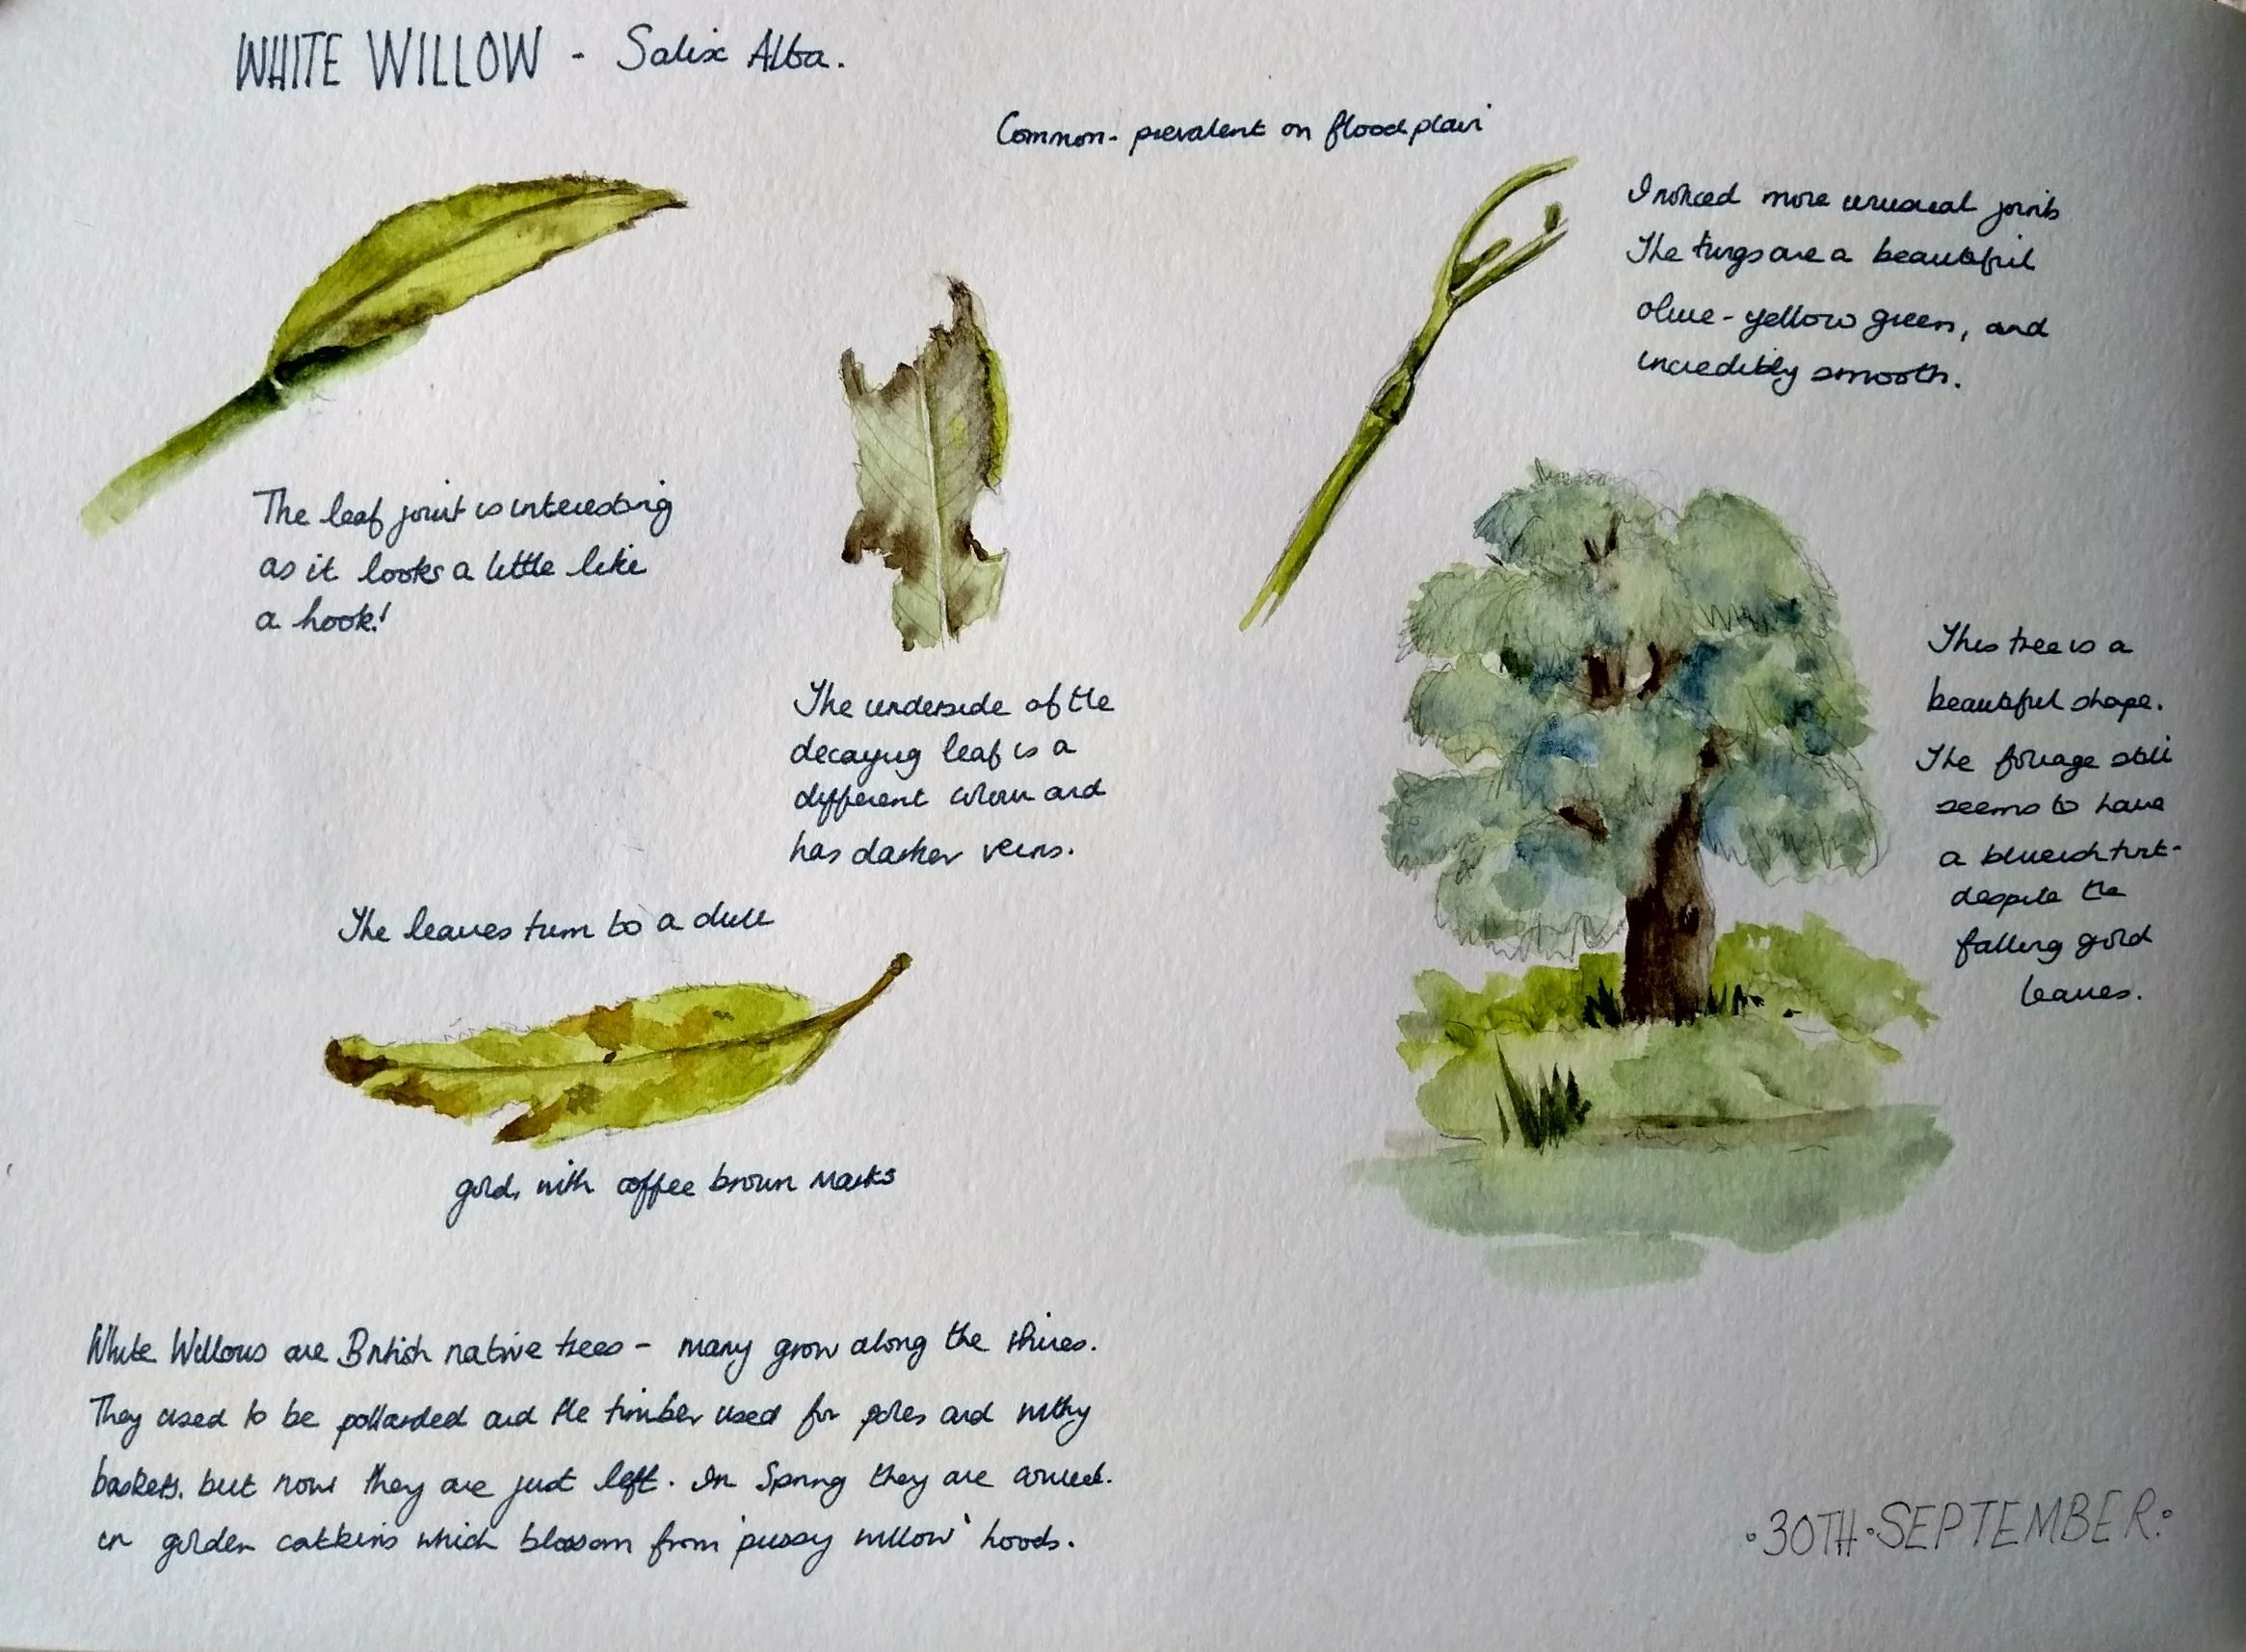 WHITE WILLOW - Salix Alba.
Common - prevalent on floodplain
I noticed more unusual joints
The twigs are a beautiful
olive-yellow green, and
incredibly smooth.
The leaf joint is interesting
as it looks a little like
a hook!
The underside of the
decaying leaf is a
different colour and
has darker veins.
This tree is a
beautiful shape.
The foliage still
seems to have
a blueish tint-
despite the
falling gold
leaves.
The leaves turn to a dull
gold, with coffee brown marks
White Willows are British native trees - many grow along the
They used to be pollarded and the timber used for poles and withy
baskets, but now they are just left. In Spring they are
in golden catkins which blossom from 'pussy willow' hoods.
•30TH•SEPTEMBER•